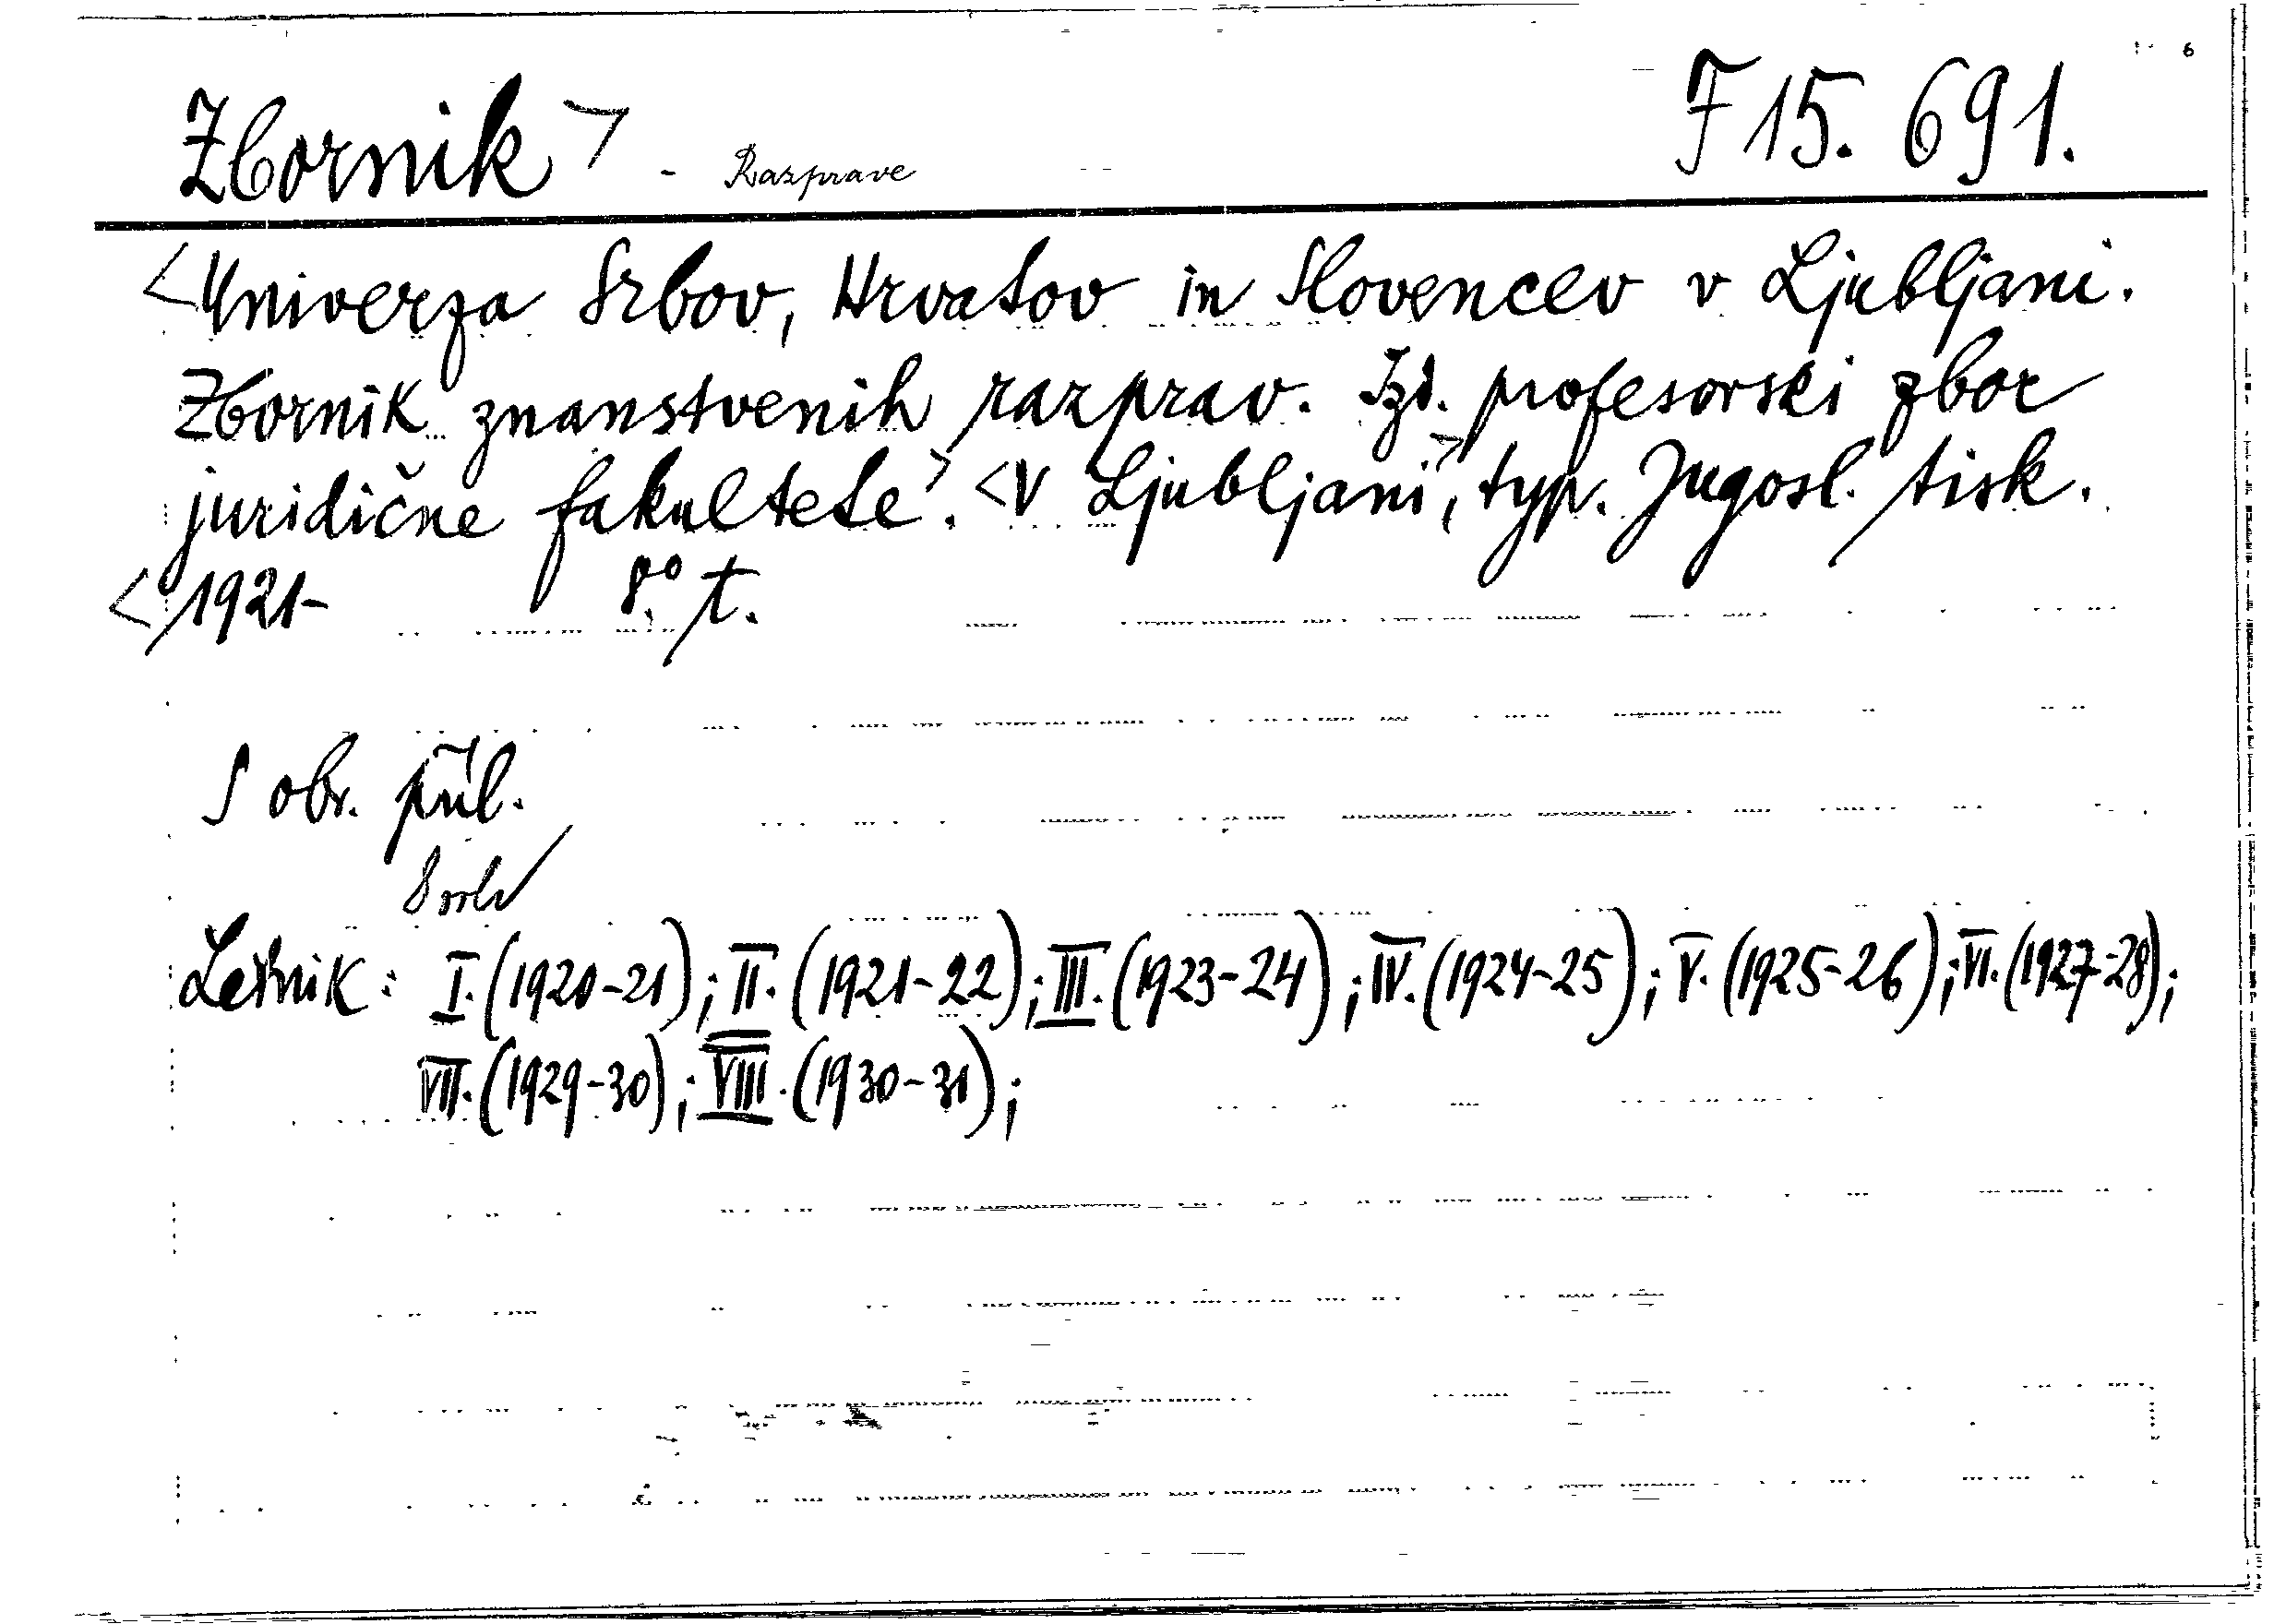 Zbornik> - Razprave F 15. 691.
6
<Univerza Srbov, Hrvatov in Slovencev v Ljubljani.
Zbornik znanstvenih razprav. Izd. profesorski zbor
juridične fakultete>. <V Ljubljani>, typ. Jugosl. tisk.
<1921- 8.° t.
S obr. příl.
Letnik: I. (1920-21); II. (1921-22); III. (1923-24); IV. (1924-25); V. (1925-26); VI. (1927-28);
VII. (1929-30); VIII. (1930-31);